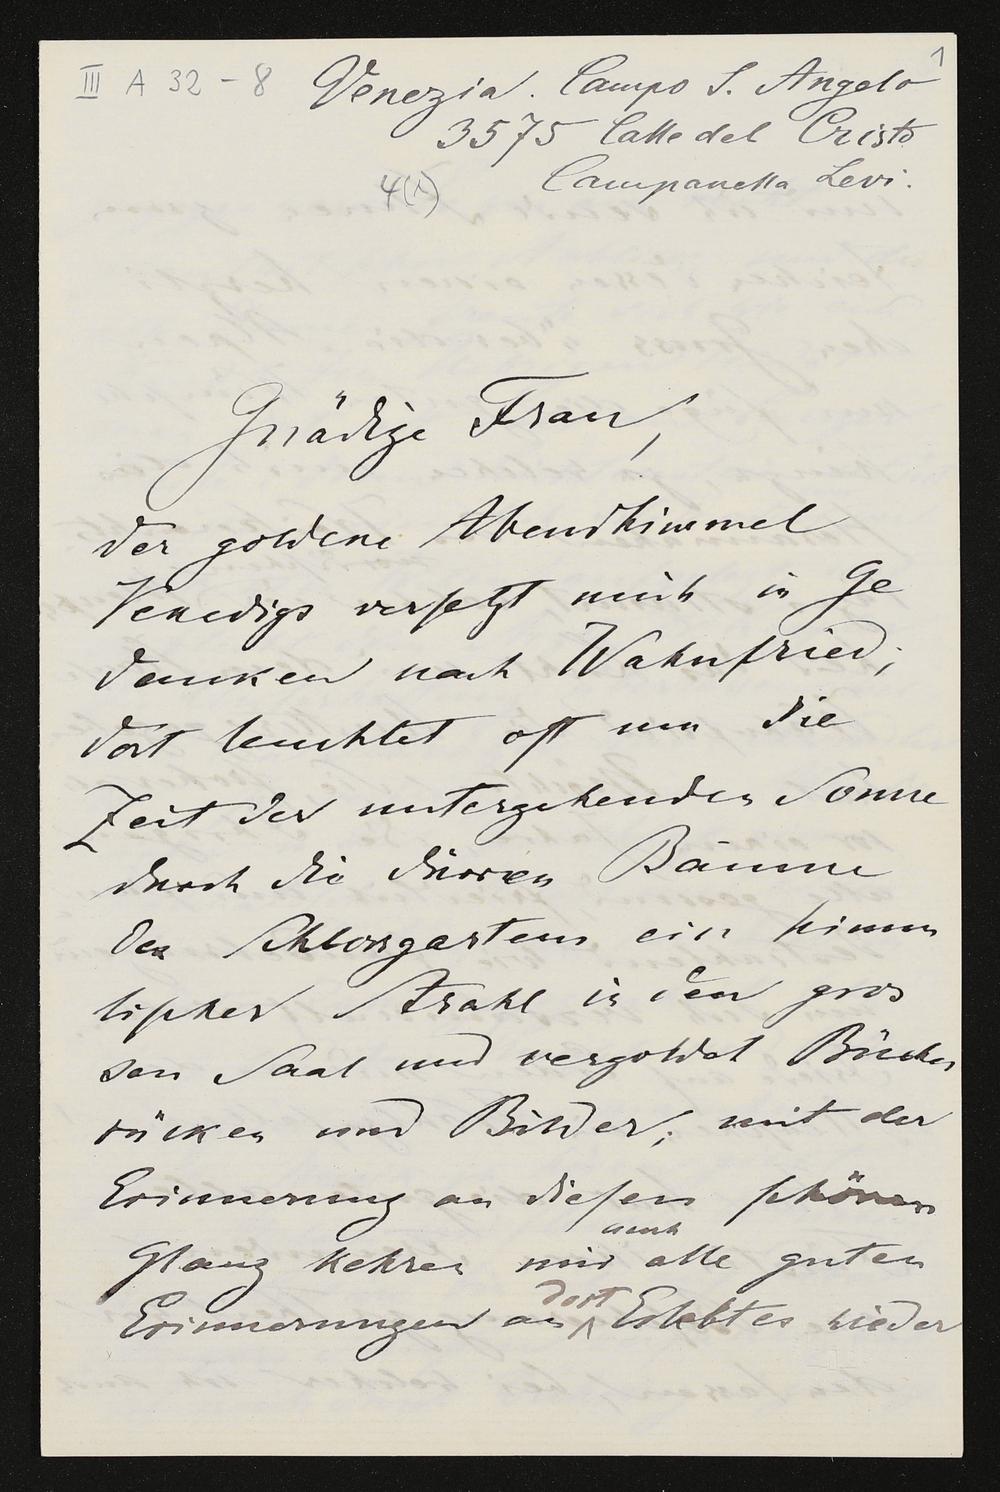 III A 32 - 8
1
Venezia. Campo S. Angelo
3575 Calle del Cristo
Campanella Levi.
4(1)
Gnädige Frau,
der goldene Abendhimmel
Venedigs versetzt mich in Ge
danken nach Wahnfried;
dort leuchtet oft um die
Zeit der untergehenden Sonne
durch die dürren Bäume
des Schlossgartens ein himm
lischer Strahl in den gros
sen Saal und vergoldet Bücher
rücken und Bilder; mit der
Erinnerung an diesen schönen
auch
Glanz kehren mir alle guten
dort
Erinnerungen an Erlebtes wieder